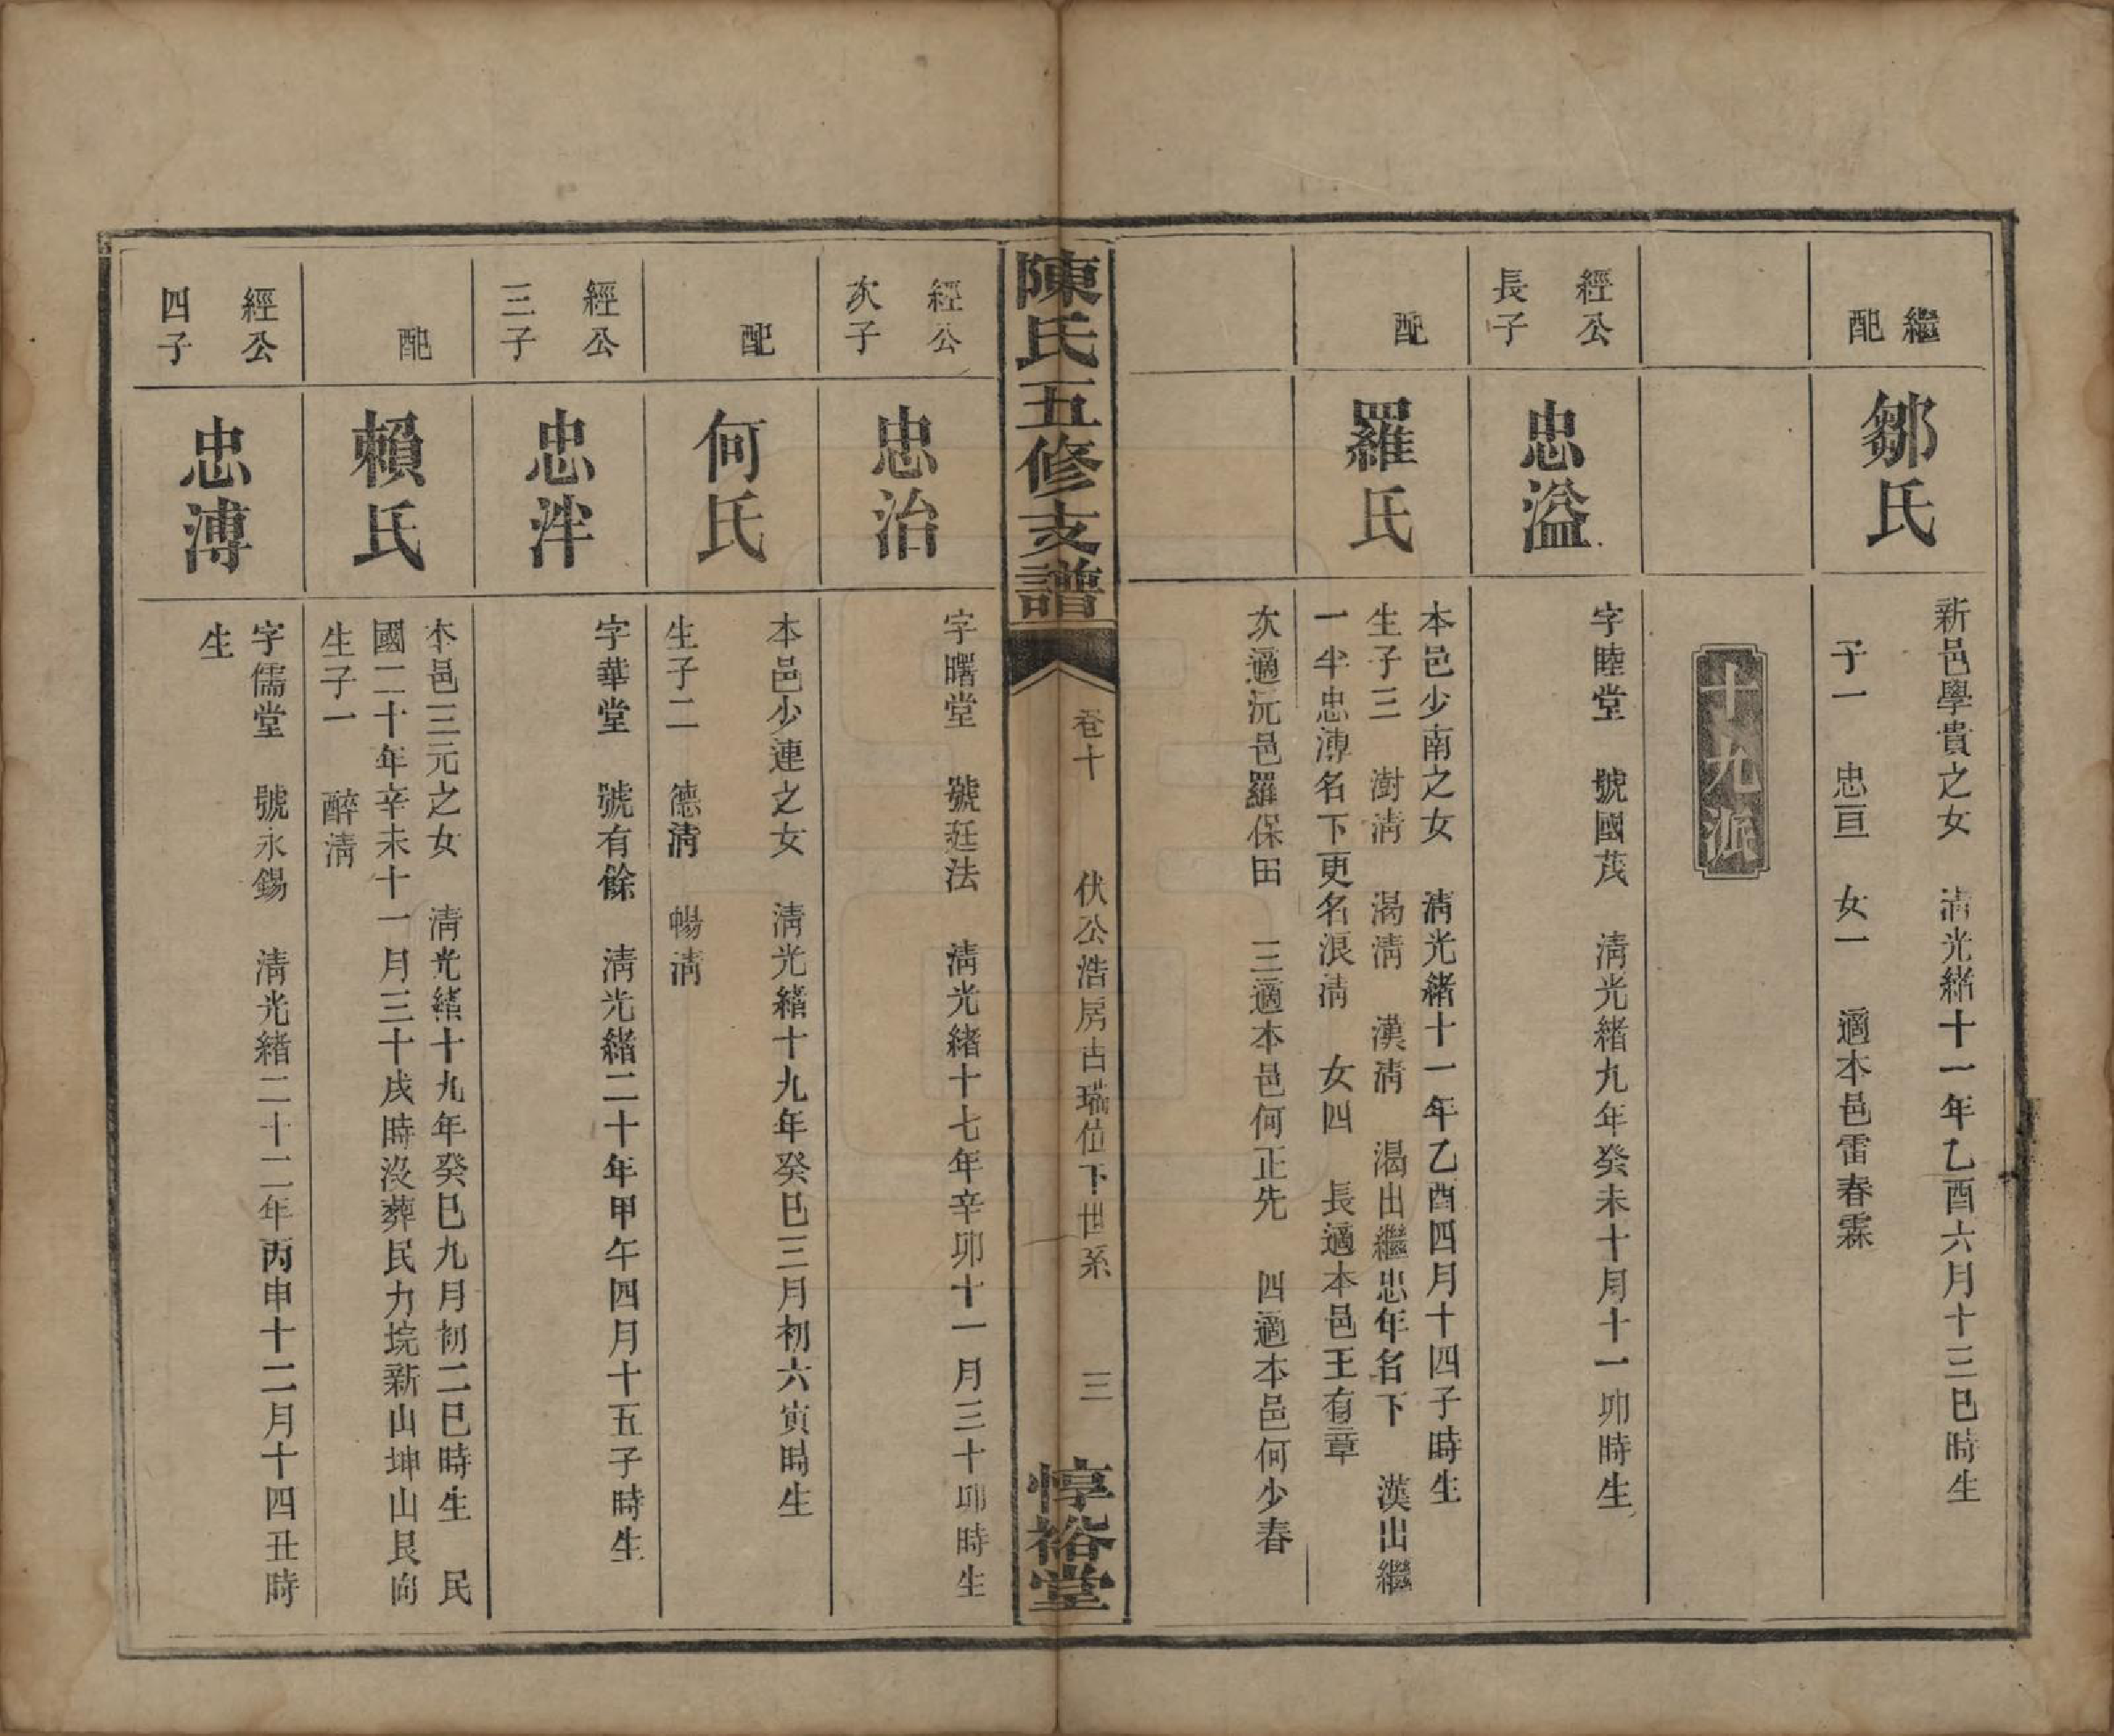 繼配
鄒氏
新邑學貴之女　清光緒十一年乙酉六月十三巳時生
子一　忠亘　女一　適本邑雷春霖
十九派
經公
長子
忠溢
字睦堂　號國茂　清光緒九年癸未十月十一卯時生
配
羅氏
本邑少南之女　清光緒十一年乙酉四月十四子時生
生子三　澍清　渴清　漢清　渴出繼忠年名下　漢出繼
一半忠溥名下更名浪清　女四　長適本邑王有章
次適沅邑羅保田　三適本邑何正先　四適本邑何少春
陳氏五修支譜
卷十　伏公浩房古瑞位下世系　三
惇裕堂
經公
次子
忠治
字曙堂　號廷法　清光緒十七年辛卯十一月三十卯時生
配
何氏
本邑少連之女　清光緒十九年癸巳三月初六寅時生
生子二　德清　暢清
經公
三子
忠泮
字華堂　號有餘　清光緒二十年甲午四月十五子時生
配
賴氏
本邑三元之女　清光緒十九年癸巳九月初二巳時生　民
國二十年辛未十一月三十戌時沒葬民力垸新山坤山艮向
生子一　醉清
經公
四子
忠溥
字儒堂　號永錫　清光緒二十二年丙申十二月十四丑時
生